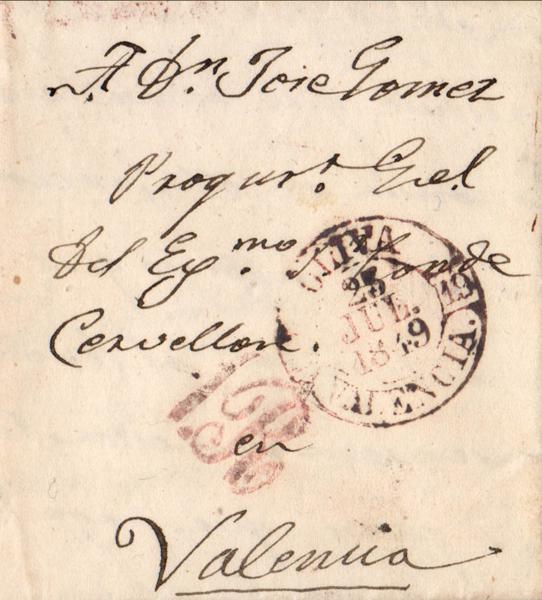 A Dn. Jose Gomez
Procur.r Gel.
del Exmo. S. Conde
Cervellon.
en
Valencia
OLIVA
25
JUL.
1849
19
VALENCIA.